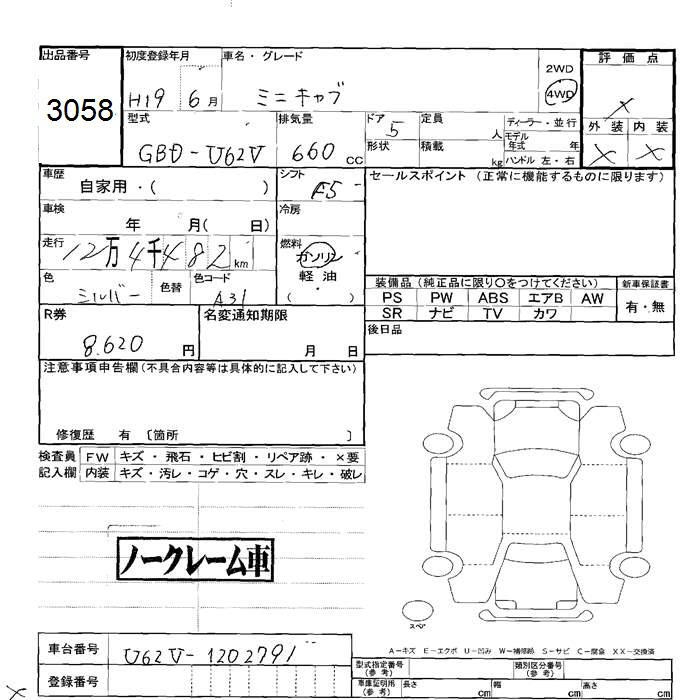 出品番号 初度登録年月 車名・グレード 評価点
3058 H19 6月 ミニキャブ 2WD 4WD ×
型式 排気量 ドア 定員 ディーラー・並行 外装 内装
GBD-U62V 660 CC 5 人 モデル年式 年 × ×
形状 積載 kg ハンドル 左・右
車歴 シフト セールスポイント (正常に機能するものに限ります)
自家用・( ) F5
車検 冷房
年 月( 日)
走行 燃料
12万4千482km ガソリン
色 色替 色コード 軽油
シルバー A31 ( ・ )
装備品 (純正品に限り○をつけてください) 新車保証書
PS PW ABS エアB AW 有・無
SR ナビ TV カワ
R券 名変通知期限 後日品
8.620 円 月 日
注意事項申告欄(不具合内容等は具体的に記入して下さい)
修復歴 有 〔箇所 〕
検査員 FW キズ・飛石・ヒビ割・リペア跡・×要
記入欄 内装 キズ・汚レ・コゲ・穴・スレ・キレ・破レ
ノークレーム車
スペア
A－キズ E－エクボ U－凹み W－補修跡 S－サビ C－腐食 XX－交換済
車台番号 U62V-1202791
型式指定番号(参考) 類別区分番号(参考)
登録番号
車庫証明用(参考) 長さ cm 幅 cm 高さ cm
×